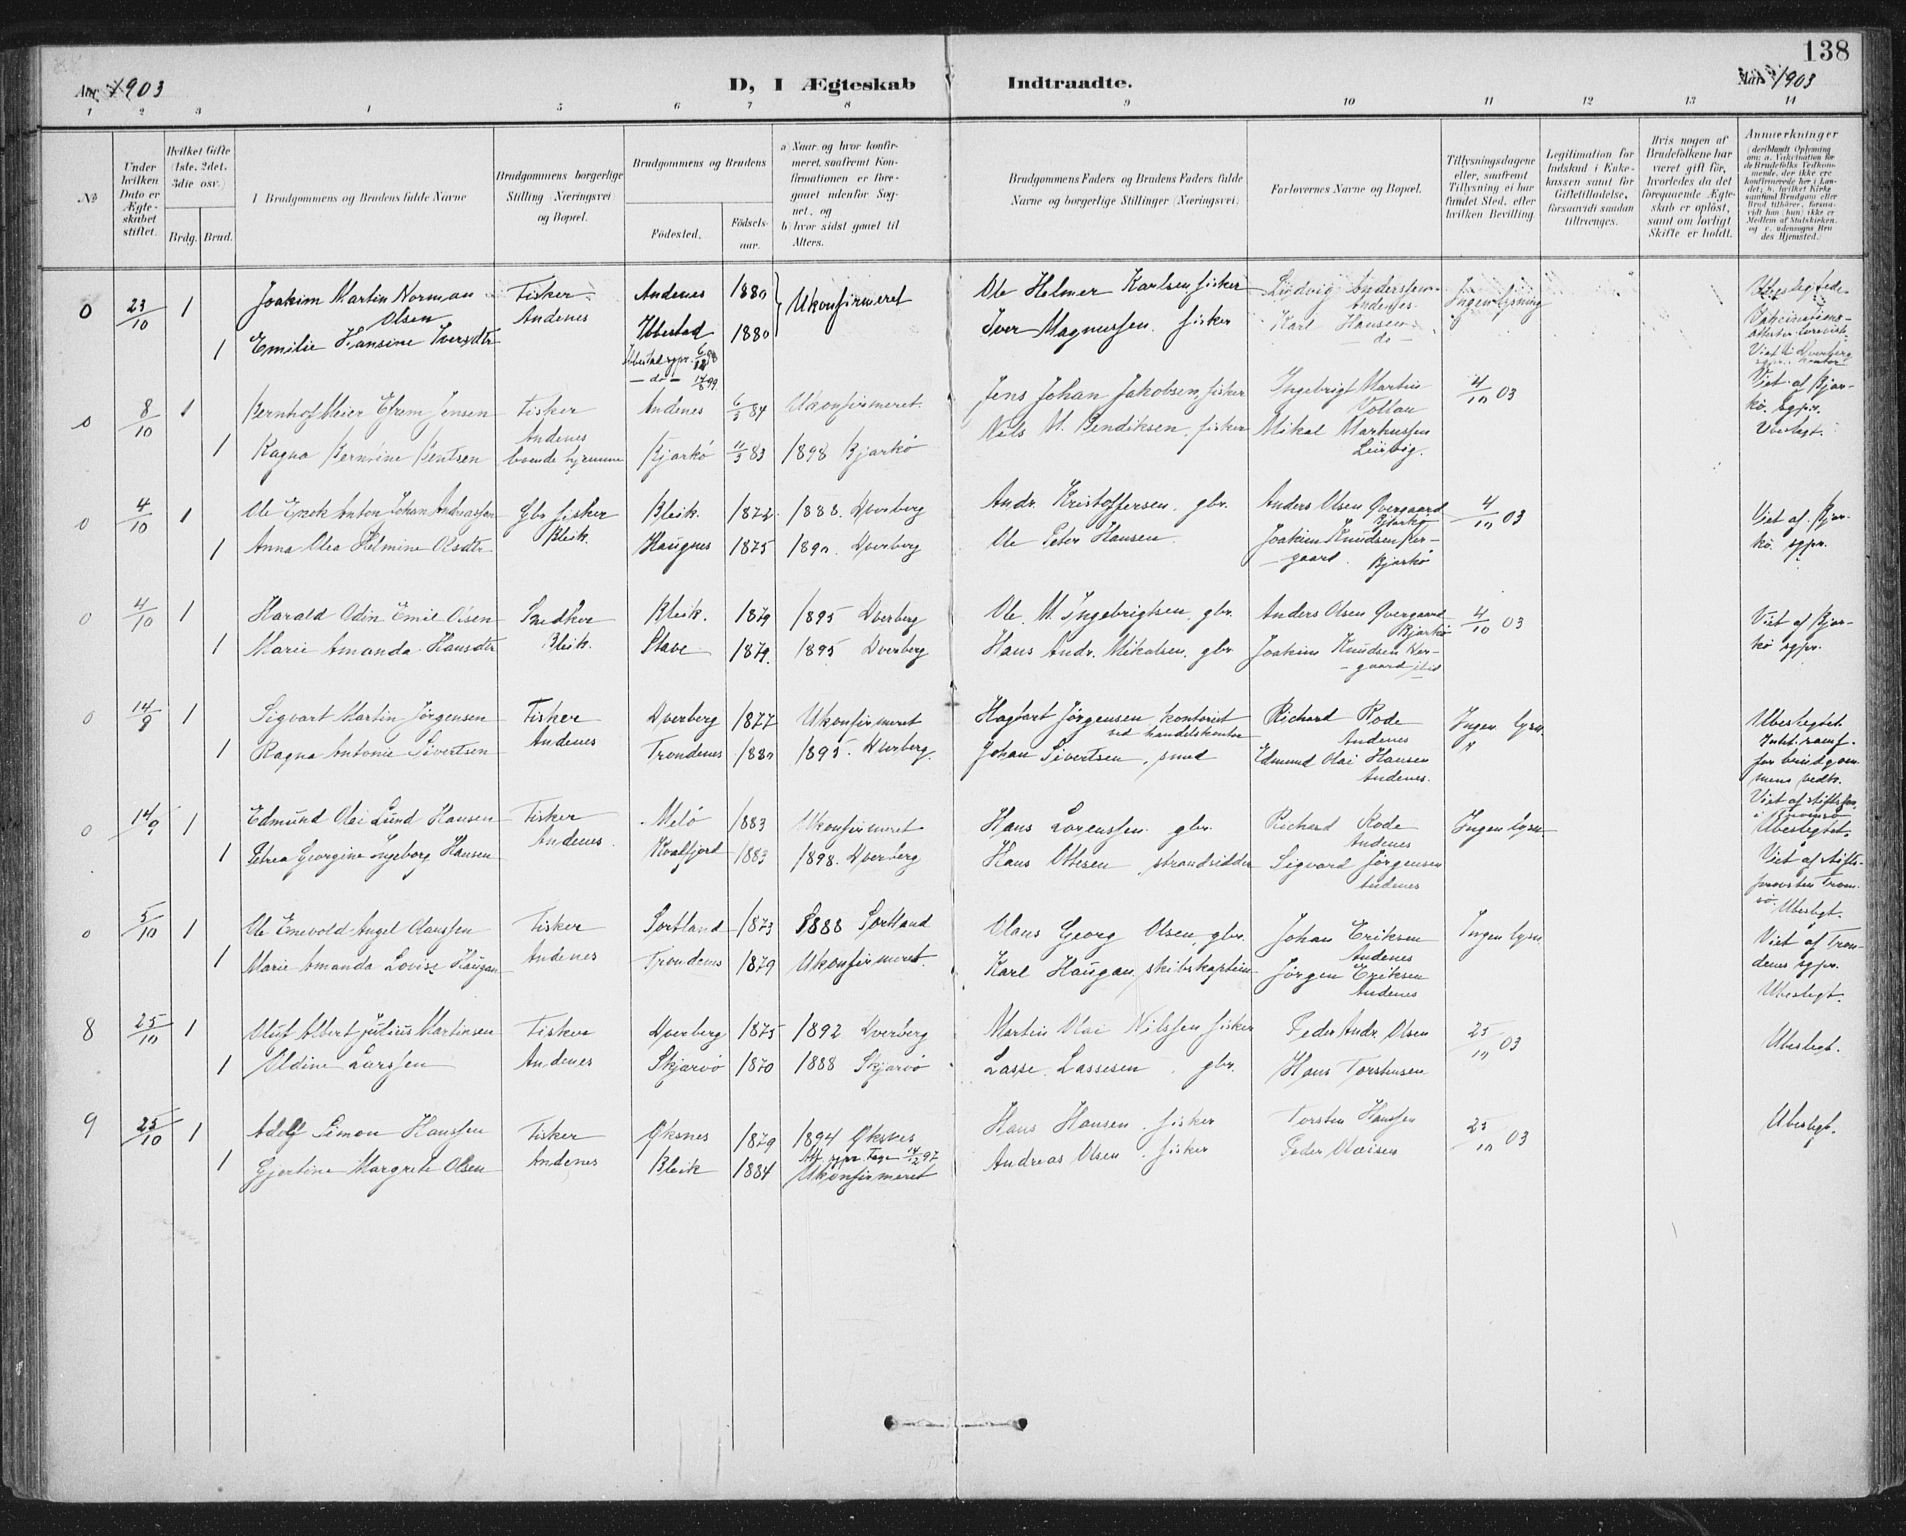 138
Aar 1903 D, I Ægteskab Indtraadte. Aar 1903
1 2 3 4 5 6 7 8 9 10 11 12 13 14
№
Under hvilken Dato er Ægteskabet stiftet.
Hvilket Gifte (1ste, 2det, 3die osv.)
Brdg. Brud.
Brudgommens og Brudens fulde Navne
Brudgommens borgerlige Stilling (Næringsvei) og Bopæl.
Brudgommens og Brudens
Födested. Födselsaar.
a) Naar og hvor konfirmeret, saafremt Konfirmationen er foregaaet udenfor Sognet, og
b) hvor sidst gaaet til Alters.
Brudgommens Faders og Brudens Faders fulde Navne og borgerlige Stillinger (Næringsvei).
Forlovernes Navne og Bopæl.
Tillysningsdagene eller, saafremt Tillysning ei har fundet Sted, efter hvilken Bevilling.
Legitimation for Indskud i Enkekassen samt for Giftetilladelse, forsaavidt saadan tiltrænges.
Hvis nogen af Brudefolkene har været gift för, hvorledes da det foregaaende Ægteskab er oplöst, samt om lovligt Skifte er holdt.
Anmærkninger
0 23/10 1 Joakim Martin Norman Olsen Fisker Andenes Andenes 1880 Ukonfirmeret Ole Helmer Karlsen fisker Ludvig Anderssen Andenes Ingen lysning
1 Emilie Hansine Iversdtr Ibbestad 1880 Iver Magnussen. fisker Karl Hansen do
Ibbestad sgpr. 6/12 98
— do — 14/8 99
0 8/10 1 Bernhof Meier Efrem Jensen Fisker Andenes Andenes 6/3 84 Ukonfirmeret. Jens Johan Jakobsen, fisker Ingebrigt Martin Vollan 4/10 03 Viet af Bjarkö. sgpr. Ubeslegt.
1 Ragna Bernsine Bentsen boende hjemme Bjarkö 11/3 83 1898 Bjarkö Nils M. Bendiksen, fisker Mikal Markussen Leirvig.
0 4/10 1 Ole Enok Anton Johan Andreassen Gbr fisker Bleik. Bleik. 1872. 1888. Dverberg Andr. Kristoffersen. gbr. Anders Olsen Øvergaard Bjarkö 4/10 03 Viet af. Bjarkö. sgpr.
1 Anna Olea Helmine Olsdtr Haugnes 1875 1890. Dverberg Ole Peter Hansen. Joakim Knudsen Nergaard. Bjarkö
0 4/10 1 Harald Odin Emil Olsen Snedker Bleik. Bleik. 1879 1895 Dverberg Ole M. Ingebrigtsen. gbr. Anders Olsen Øvergaard Bjarkö 4/10 03 Viet af Bjarkö sgpr.
1 Marie Amanda Hansdtr Stave 1879. 1895 Dverberg Hans Andr. Mikalsen. gbr. Joakim Knudsen Nergaard ibid
0 14/9 1 Sigvart Martin Jörgensen Fisker Andenes Dverberg 1877 Ukonfirmeret Hagbart Jörgensen, kontorist ved handelskontor Richard Rode Andenes Ingen lysn. Ubeslegtet.
1 Ragna Antonie Sivertsen Trondenes 1880 1895. Dverberg. Johan Sivertsen, smed Edmund Olai Hansen Andenes.
0 14/9 1 Edmund Olai Lund Hansen Fisker Andenes. Melö 1883 Ukonfirmeret Hans Lorenssen. gbr. Richard Rode Andenes Ingen lysn Ubeslegtet.
1 Petrea Georgine Ingeborg Hansen Kvalfjord 1883 1898. Dverberg Hans Ottesen strandsidder Sigvard Jörgensen Andenes Viet af stiftsprovsten Tromsö. Ubeslegt.
0 5/10 1 Ole Enevold Angel Olaussen Fisker Andenes Sortland 1873 1888 Sortland Olaus Georg Olsen, gbr. Johan Eriksen Andenes Ingen lysn Viet af Trondenes sgpr. Ubeslegt.
1 Marie Amanda Lovise Haugan Trondenes 1879 Ukonfirmeret. Karl Haugan, skibskaptein Jörgen Eriksen Andenes
8 25/10 1 Oluf Albert Julius Martinsen Fisker Andenes Dverberg 1875 1892 Dverberg Martin Olai Nilssen fisker Peder Andr. Olsen 25/10 03 Ubeslegt.
1 Oldine Larssen Skjærvö 1870 1888 Skjærvö Lasse Lassesen. gbr. Hans Torstensen
9 25/10 1 Adolf Simon Hanssen Fisker Andenes Øksnes 1879 1894 Øksnes Hans Hansen. fisker Torsten Hanssen 25/10 03 Ubeslegt.
1 Gjertine Margrete Olsen Bleik 1884 Ukonfirmeret Andreas Olsen. fisker Peder Olaisen